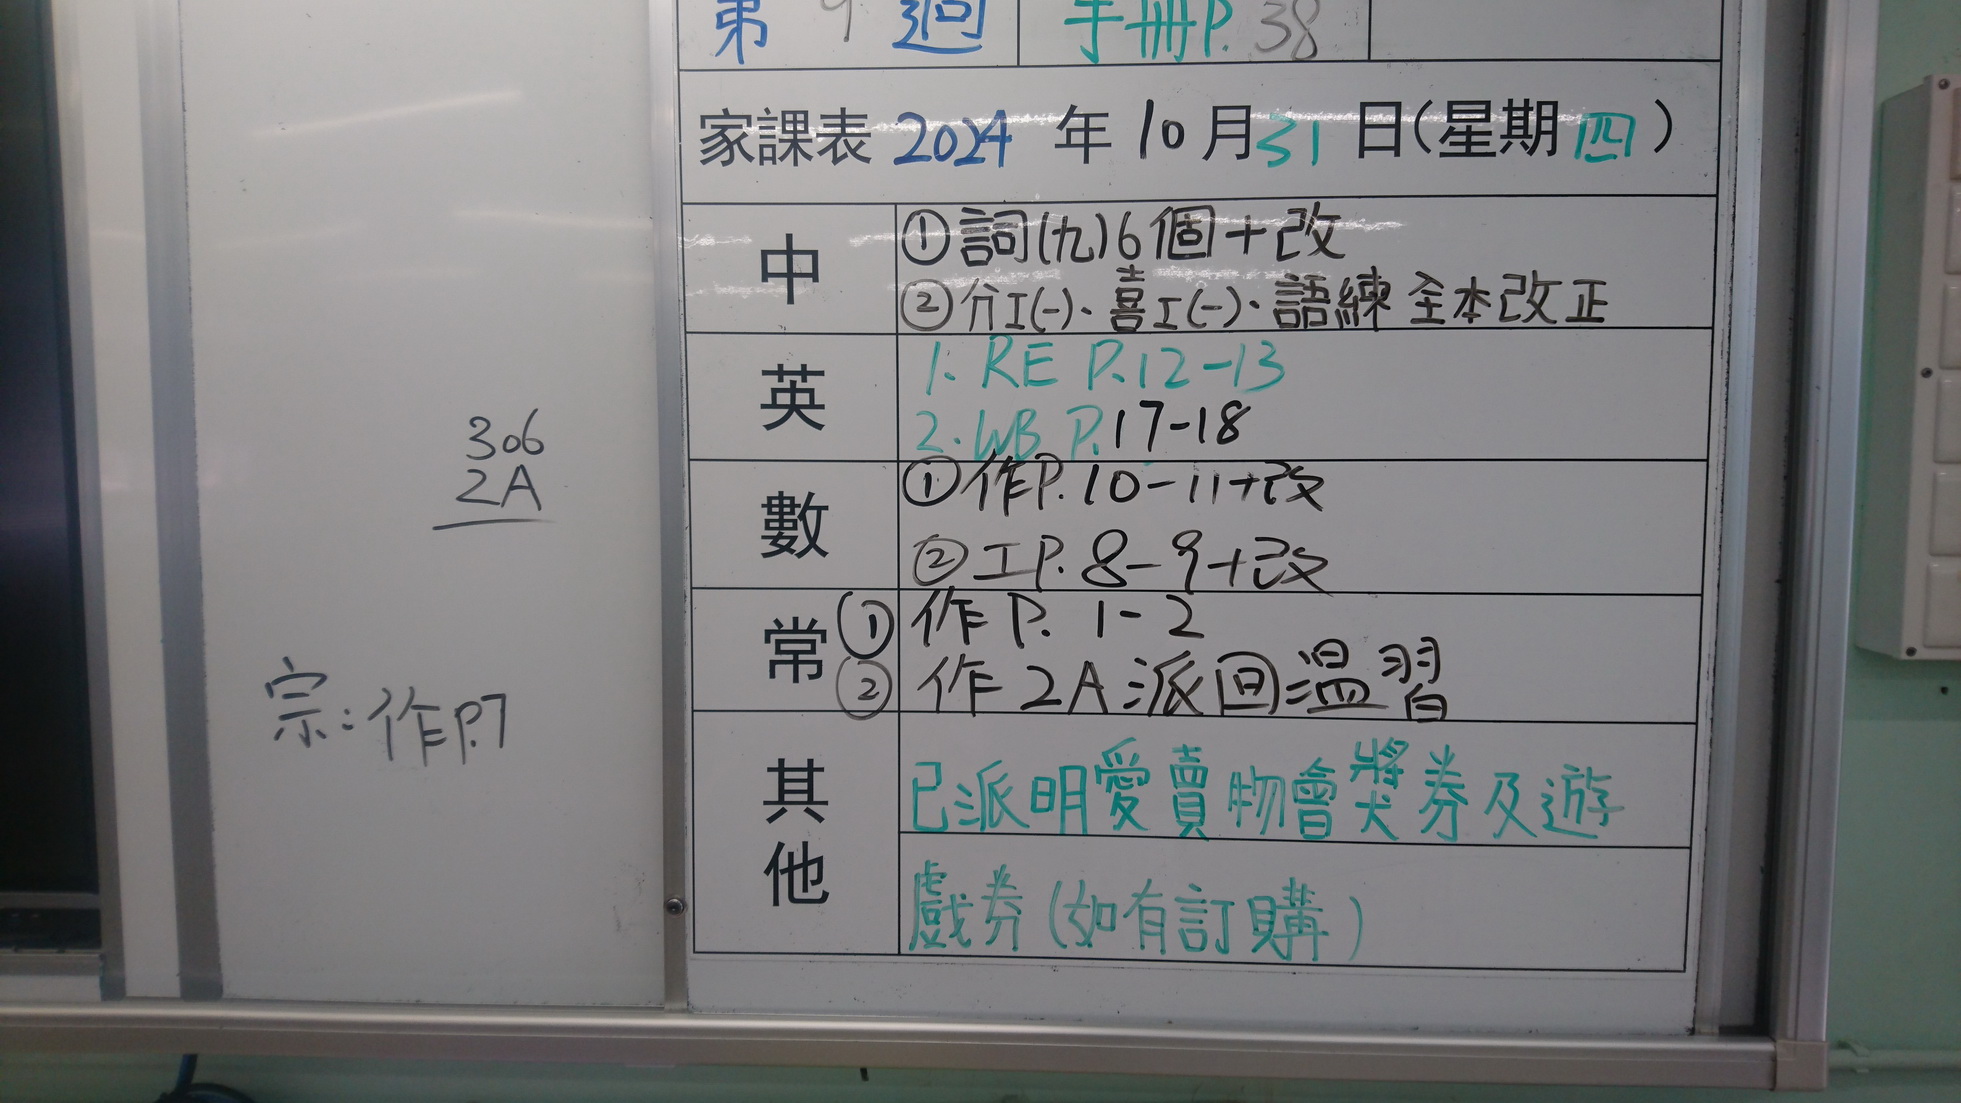 第 9 週 手冊P. 38
家課表 2024 年 10 月 31 日(星期 四 )
中
①詞(九)6個+改
②介工(一)、喜工(一)、語練 全本改正
英
1. RE P.12-13
2. WB P.17-18
數
①作P.10-11+改
②工P.8-9+改
常
① 作 P. 1-2
② 作 2A 派回溫習
其他
已派明愛賣物會獎券及遊
戲券(如有訂購)
306
2A
宗:作P.7